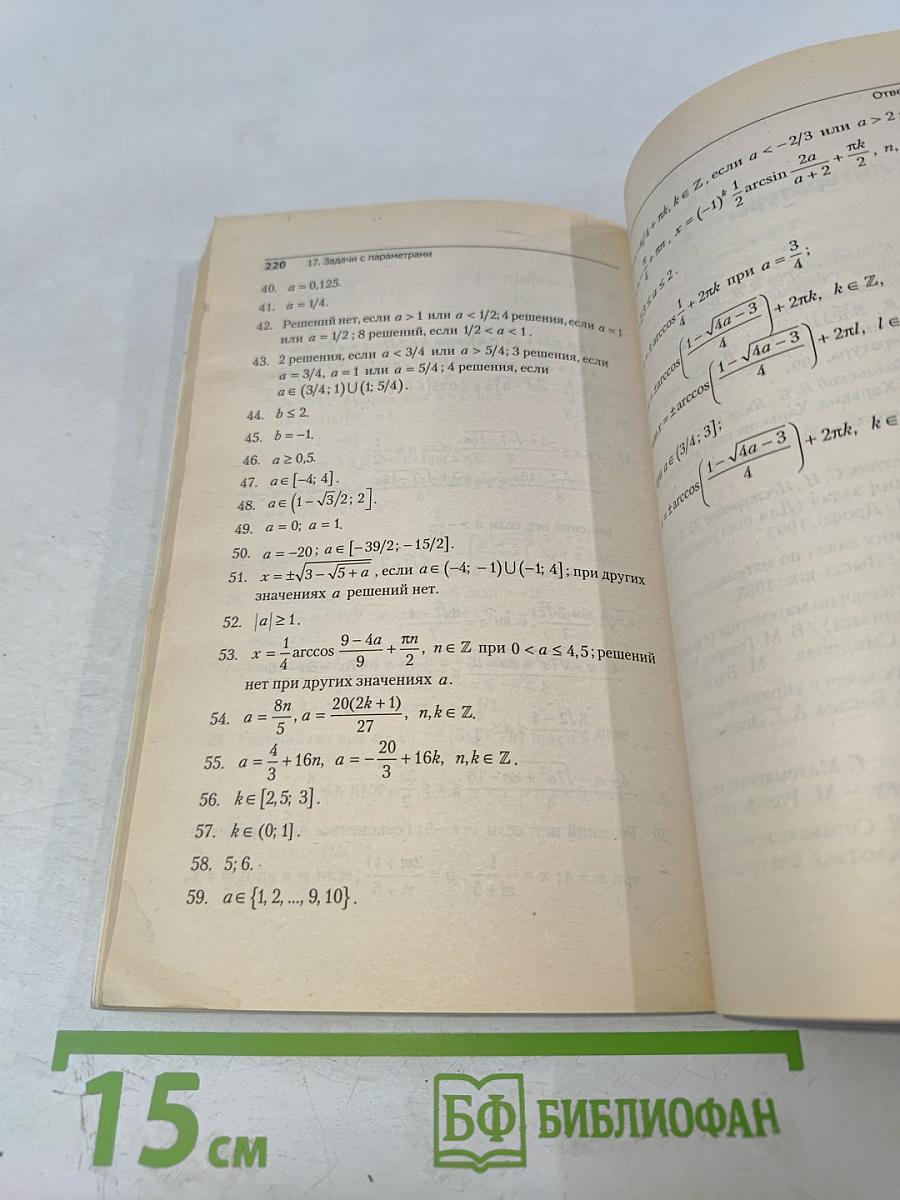 220 17. Задачи с параметрами
40. a = 0,125.
41. a = 1/4.
42. Решений нет, если a > 1 или a < 1/2; 4 решения, если a = 1
или a = 1/2; 8 решений, если 1/2 < a < 1.
43. 2 решения, если a < 3/4 или a > 5/4; 3 решения, если
a = 3/4, a = 1 или a = 5/4; 4 решения, если
a ∈ (3/4; 1)∪(1; 5/4).
44. b ≤ 2.
45. b = −1.
46. a ≥ 0,5.
47. a ∈ [−4; 4].
48. a ∈ (1 − √3/2; 2].
49. a = 0; a = 1.
50. a = −20; a ∈ [−39/2; −15/2].
51. x = ±√(3 − √(5 + a)), если a ∈ (−4; −1)∪(−1; 4]; при других
значениях a решений нет.
52. |a| ≥ 1.
53. x = 1/4 arccos (9 − 4a)/9 + πn/2, n ∈ ℤ при 0 < a ≤ 4,5; решений
нет при других значениях a.
54. a = 8n/5, a = 20(2k + 1)/27, n, k ∈ ℤ.
55. a = 4/3 + 16n, a = −20/3 + 16k, n, k ∈ ℤ.
56. k ∈ [2,5; 3].
57. k ∈ (0; 1].
58. 5; 6.
59. a ∈ {1, 2, ..., 9, 10}.
π/4 + πk, k ∈ ℤ, если a < −2/3 или a > 2
π/4 + πn, x = (−1)^k 1/2 arcsin 2a/(a + 2) + πk/2, n,
≤ a ≤ 2.
±arccos 1/4 + 2πk при a = 3/4;
±arccos((1 − √(4a − 3))/4) + 2πk, k ∈ ℤ,
x = ±arccos((1 − √(4a − 3))/4) + 2πl, l ∈
a ∈ (3/4; 3];
= ±arccos((1 − √(4a − 3))/4) + 2πk, k ∈
15 см
БФ БИБЛИОФАН